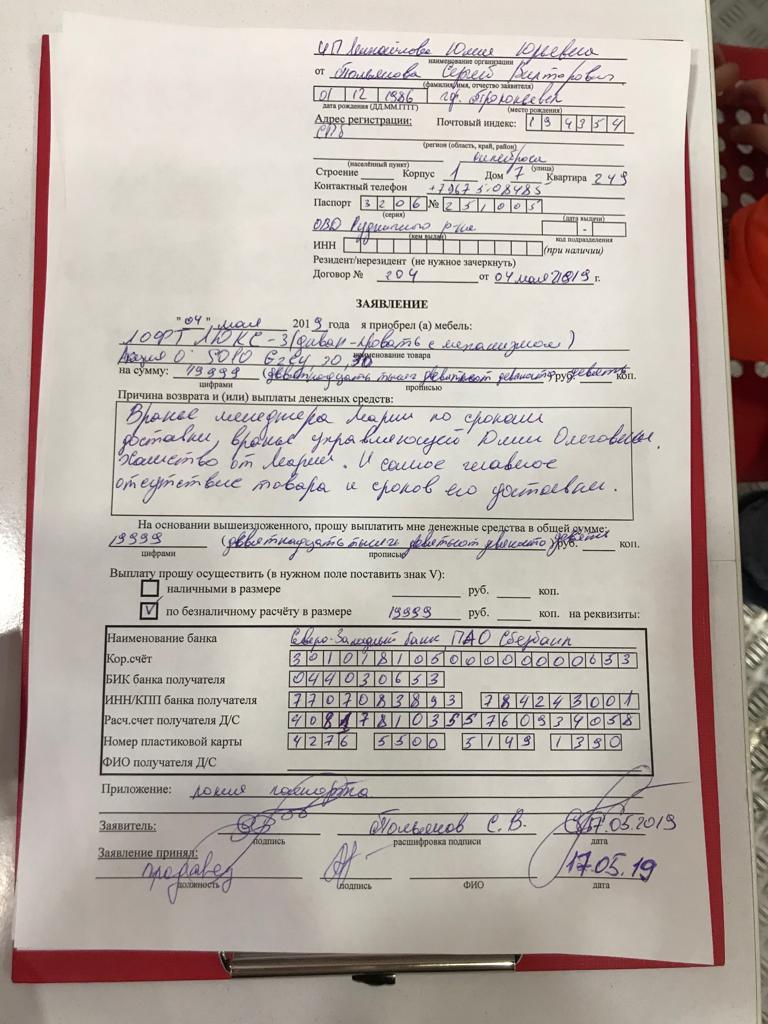 ИП Юлия Юрьевна
наименование организации
от Польянова Сергей Викторович
(фамилия, имя, отчество заявителя)
01 12 1986 гор.
дата рождения (ДД.ММ.ГГГГ) (место рождения)
Адрес регистрации: Почтовый индекс: 194354
СПб
(регион (область, край, район)
(населённый пункт) (улица)
Строение Корпус 1 Дом 7 Квартира 249
Контактный телефон
Паспорт 3206 № 251005
(серия) (дата выдачи)
ОВД Рудничного р-на
(кем выдан) код подразделения
ИНН (при наличии)
Резидент/нерезидент (не нужное зачеркнуть)
Договор № 204 от 04 мая 2019 г.
ЗАЯВЛЕНИЕ
"04" мая 2019 года я приобрел (а) мебель:
ЛОФТ ЛЮКС-3 (диван-кровать с механизмом)
Акция О
наименование товара
на сумму: 19999 (девятнадцать тысяч девятьсот девяносто девять) руб. коп.
цифрами прописью
Причина возврата и (или) выплаты денежных средств:
Вранье менеджера Марии по срокам
доставки, вранье управляющей Юлии Олеговны.
Хамство от Марии. И самое главное
отсутствие товара и сроков его доставки.
На основании вышеизложенного, прошу выплатить мне денежные средства в общей сумме:
19999 (девятнадцать тысяч девятьсот девяносто девять) руб. коп.
цифрами прописью
Выплату прошу осуществить (в нужном поле поставить знак V):
наличными в размере руб. коп.
V по безналичному расчёту в размере 19999 руб. коп. на реквизиты:
Наименование банка Северо-Западный банк ПАО Сбербанк
Кор.счёт 30101810500000000653
БИК банка получателя 044030653
ИНН/КПП банка получателя 7707083893 784243001
Расч.счет получателя Д/С 40817810355760934058
Номер пластиковой карты 4276 5500 5149 1390
ФИО получателя Д/С
Приложение: копия паспорта
Заявитель: Польянов С.В. 17.05.2019
подпись расшифровка подписи дата
Заявление принял:
продавец 17.05.19
должность подпись ФИО дата